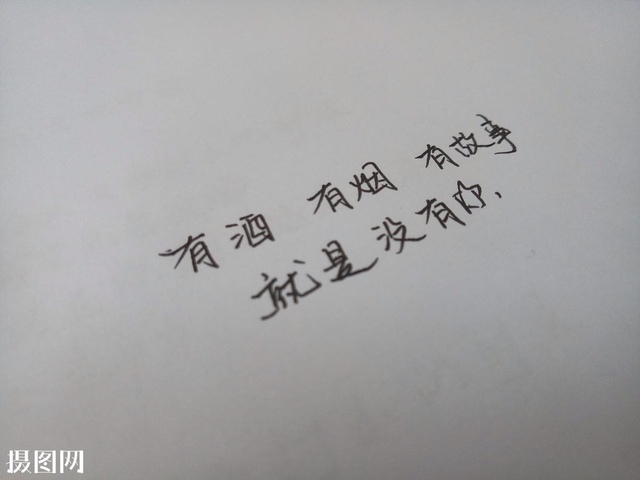 有酒 有烟 有故事
就是没有你.
摄图网